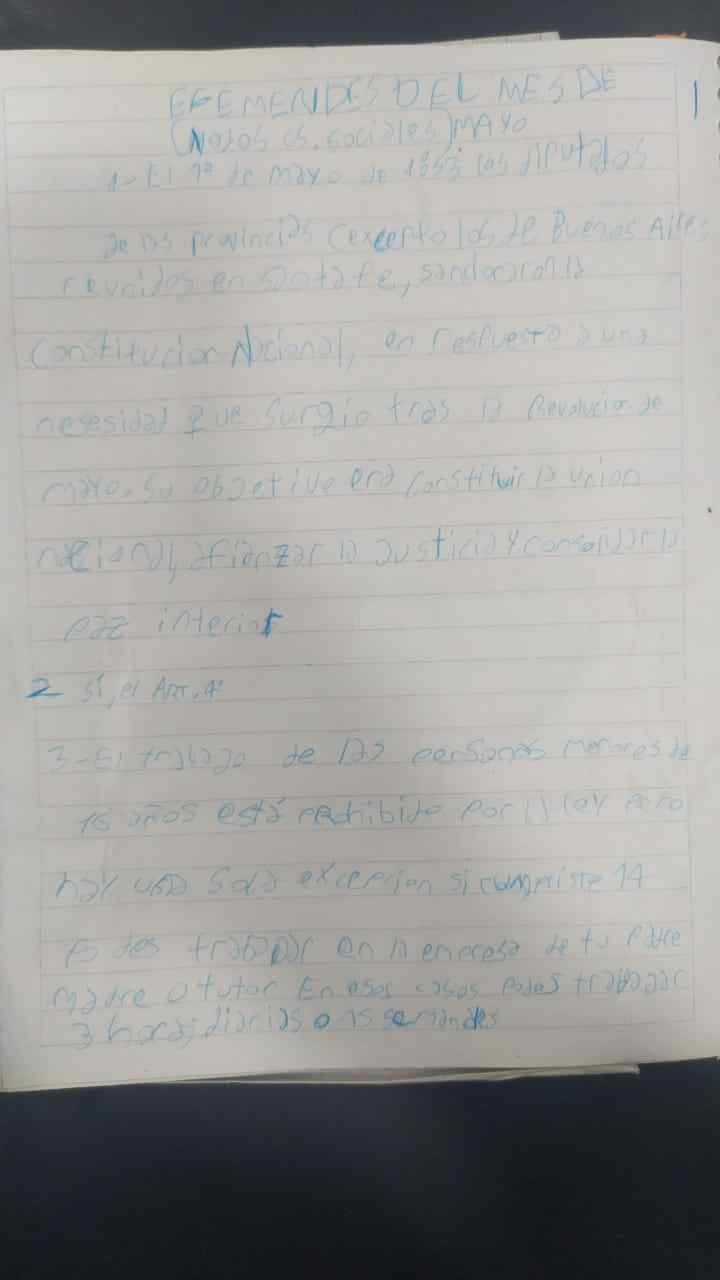 EFEMERIDES DEL MES DE
(Notos cs. sociales) MAYO
1
1- El 1º de mayo de 1853 los diputados
de las provincias (excepto los de Buenos Aires
reunidos en santa fe, sancionaron la
Constitucion Nacional, en respuesta a una
nesesidad que surgio tras la Revolucion de
mayo. su objetivo era constituir la union
nacional, afianzar la Justicia y consolidar la
paz interior
2 sí, el ART. 4º
3- El trabajo de las personas menores de
16 años está prohibido por la ley pero
hay una sola excepcion si cumpriste 14
Podes trabajar en la empresa de tu Padre
Madre o tutor En esos casos Podes trabajar
3 horas diarias o 15 semanales